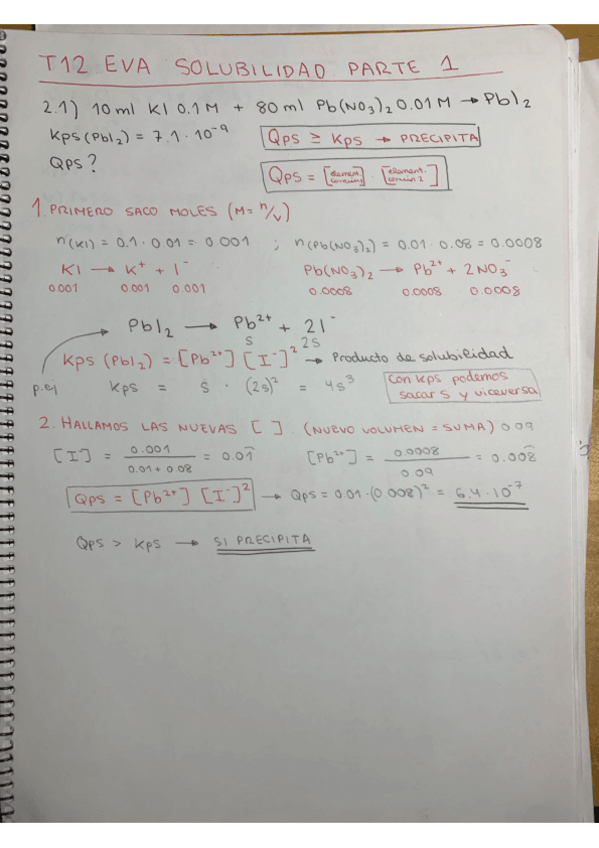 T12 EVA SOLUBILIDAD PARTE 1
2.1) 10 ml KI 0.1 M + 80 ml Pb(NO₃)₂ 0.01 M → PbI₂
Kps (PbI₂) = 7.1 · 10⁻⁹ Qps ≥ Kps → PRECIPITA
Qps? Qps = [element. común 1] · [element. común 2]
1. PRIMERO SACO MOLES (M = n/V)
n(KI) = 0.1 · 0.01 = 0.001 ; n(Pb(NO₃)₂) = 0.01 · 0.08 = 0.0008
KI → K⁺ + I⁻ Pb(NO₃)₂ → Pb²⁺ + 2NO₃⁻
0.001 0.001 0.001 0.0008 0.0008 0.0008
PbI₂ → Pb²⁺ + 2I⁻
S 2S
Kps (PbI₂) = [Pb²⁺] [I⁻]² → Producto de solubilidad
p.ej Kps = S · (2s)² = 4s³ Con kps podemos
sacar s y viceversa
2. HALLAMOS LAS NUEVAS [ ]. (NUEVO VOLUMEN = SUMA) 0.09
[I] = 0.001 / 0.01 + 0.08 = 0.01 [Pb²⁺] = 0.0008 / 0.09 = 0.008
Qps = [Pb²⁺] [I⁻]² → Qps = 0.01 · (0.008)² = 6.4 · 10⁻⁷
Qps > Kps → SI PRECIPITA